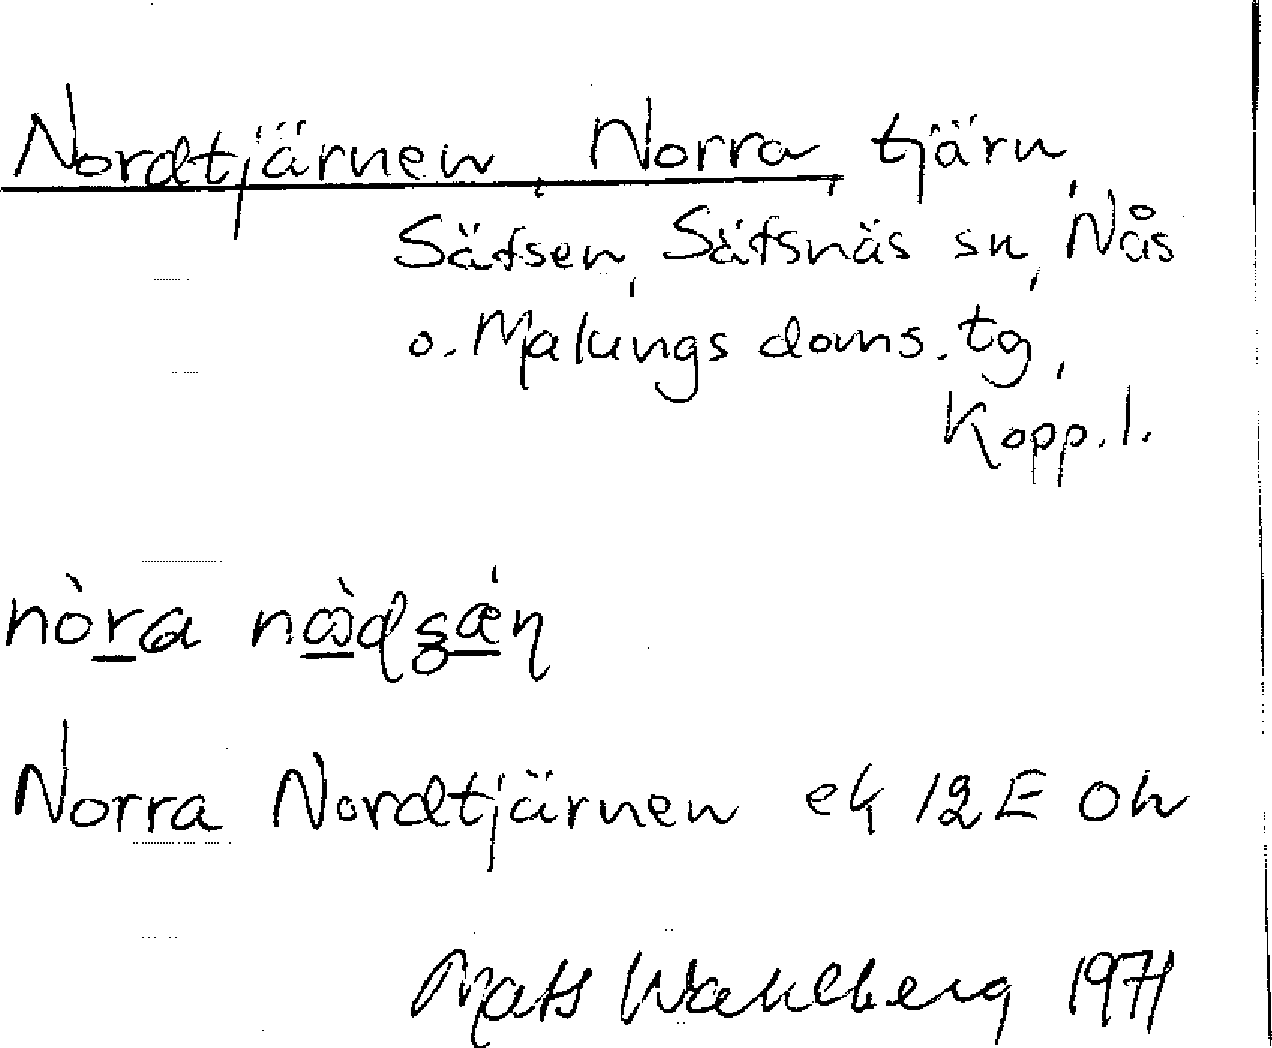 Nordtjärnen, Norra, tjärn,
Säfsen, Säfsnäs sn, Nås
o. Malungs doms. tg,
Kopp. l.
nòra
Norra Nordtjärnen ek 12E 0h
Mats Wahlberg 1971